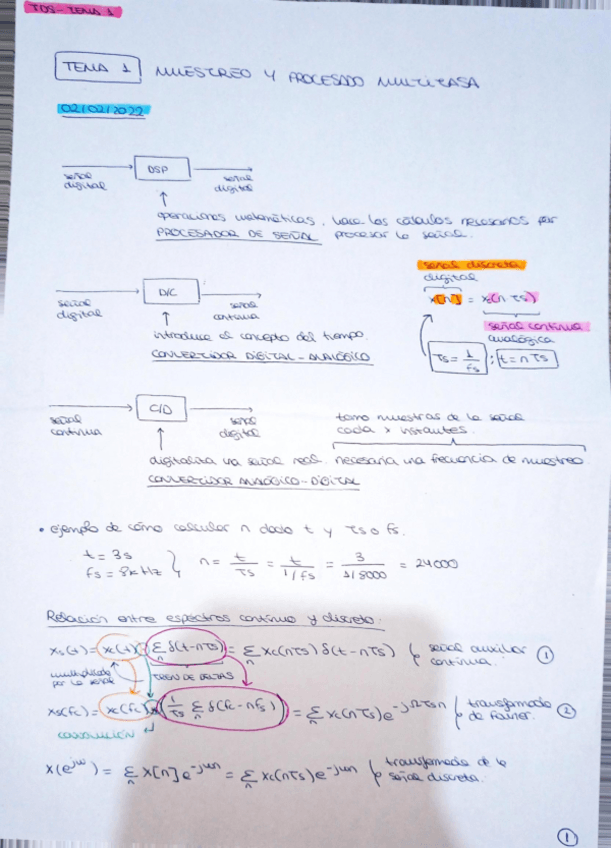 TDS - TEMA 1
TEMA 1 MUESTREO Y PROCESADO MULTITASA
02/02/2022
señal digital → DSP → señal digital
operaciones matemáticas, hace los cálculos necesarios par
PROCESADOR DE SEÑAL procesar la señal.
señal discreta
digital
x[n] = xc(n Ts)
señal continua
analógica
Ts = 1/fs ; t = n Ts
señal digital → D/C → señal continua
introduce el concepto del tiempo.
CONVERTIDOR DIGITAL - ANALÓGICO
señal continua → C/D → señal digital
tomo muestras de la señal
cada x instantes.
digitaliza una señal real. necesaria una frecuencia de muestreo
CONVERTIDOR ANALÓGICO - DIGITAL
• ejemplo de cómo calcular n dado t y Ts o fs.
t = 3s
fs = 8kHz } n = t/Ts = t/(1/fs) = 3/(1/8000) = 24000
Relación entre espectros continuo y discreto:
xs(t) = xc(t) · Σn δ(t-nTs) = Σn xc(nTs) δ(t-nTs) } señal auxiliar continua. ①
multiplicado por la señal
TREN DE DELTAS
xs(f) = xc(f) * (1/Ts Σn δ(f-nfs)) = Σn xc(nTs) e^-jΩTsn } transformada de Fourier. ②
CONVOLUCIÓN
X(e^jω) = Σn x[n] e^-jωn = Σn xc(nTs) e^-jωn } transformada de la señal discreta.
①